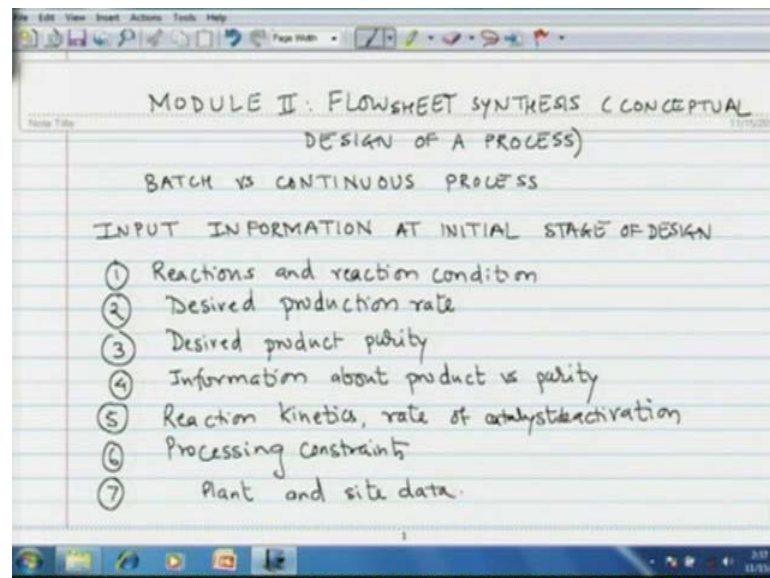 File Edit View Insert Actions Tools Help
Page Width
MODULE II: FLOWSHEET SYNTHESIS (CONCEPTUAL
Note Title
11/15/20
DESIGN OF A PROCESS)
BATCH VS CONTINUOUS PROCESS
INPUT INFORMATION AT INITIAL STAGE OF DESIGN
1 Reactions and reaction condition
2 Desired production rate
3 Desired product purity
4 Information about product vs purity
5 Reaction kinetics, rate of catalyst deactivation
6 Processing constraints
7 Plant and site data.
1
2:37